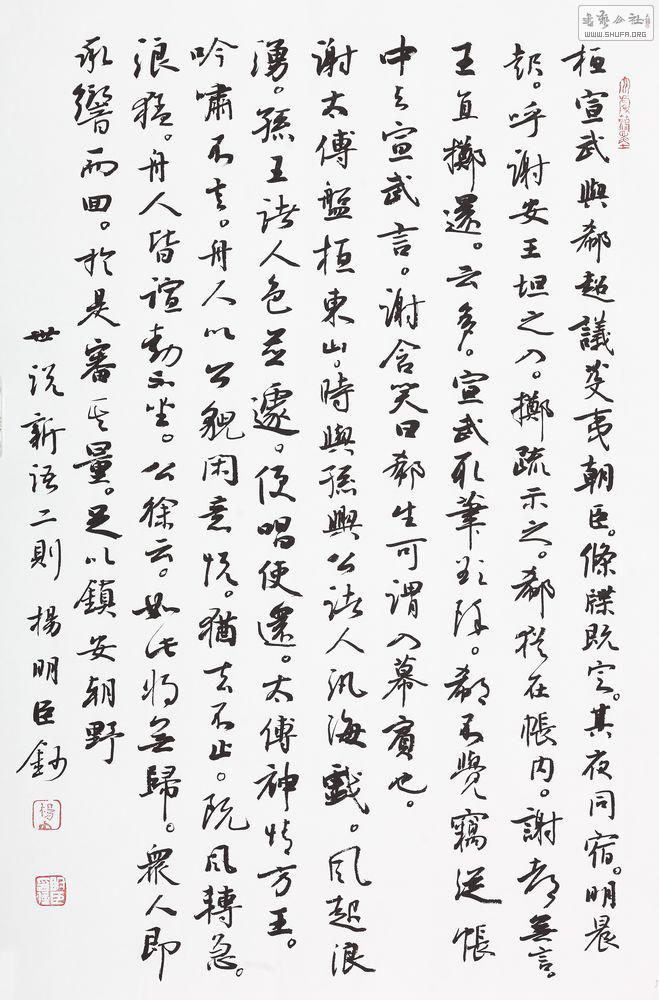 桓宣武與郗超議芟夷朝臣。條牒既定。其夜同宿。明晨
起。呼謝安王坦之入。擲疏示之。郗猶在帳內。謝都無言。
王直擲還。云多。宣武取筆欲除。郗不覺竊從帳
中與宣武言。謝含笑曰郗生可謂入幕賓也。
謝太傅盤桓東山。時與孫興公諸人汎海戲。風起浪
湧。孫王諸人色並遽。便唱使還。太傅神情方王。
吟嘯不言。舟人以公貌閑意悅。猶去不止。既風轉急。
浪猛。舟人皆諠動不坐。公徐云。如此將無歸。眾人即
承響而回。於是審其量。足以鎮安朝野
世說新語二則 楊明臣鈔
書藝公社
WWW.SHUFA.ORG